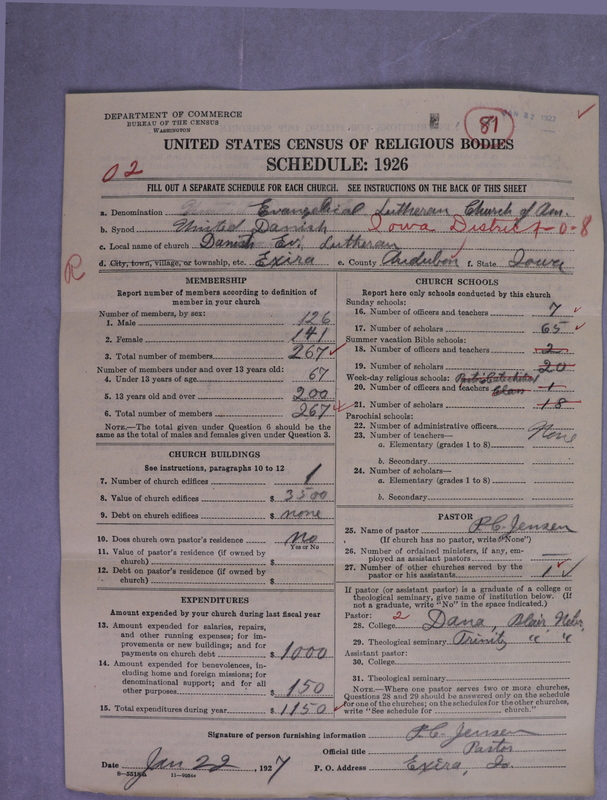 DEPARTMENT OF COMMERCE
BUREAU OF THE CENSUS
WASHINGTON
81
UNITED STATES CENSUS OF RELIGIOUS BODIES
SCHEDULE: 1926
02
FILL OUT A SEPARATE SCHEDULE FOR EACH CHURCH. SEE INSTRUCTIONS ON THE BACK OF THIS SHEET
a. Denomination Evangelical Lutheran Church of Am.
b. Synod United Danish Iowa District 0-8
c. Local name of church Danish Ev. Lutheran
d. City, town, village, or township, etc. Exira e. County Audubon f. State Iowa
R
MEMBERSHIP
Report number of members according to definition of
member in your church
Number of members, by sex:
1. Male 126
2. Female 141
3. Total number of members 267
Number of members under and over 13 years old:
4. Under 13 years of age 67
5. 13 years old and over 200
6. Total number of members 267
NOTE.—The total given under Question 6 should be
the same as total of males and females given under Question 3.
CHURCH BUILDINGS
See instructions, paragraphs 10 to 12
7. Number of church edifices 1
8. Value of church edifices $ 3500
9. Debt on church edifices $ none
10. Does church own pastor's residence? No
Yes or No
11. Value of pastor's residence (if owned by
church) $
12. Debt on pastor's residence (if owned by
church) $
EXPENDITURES
Amount expended by your church during last fiscal year
13. Amount expended for salaries, repairs,
and other running expenses; for im-
provements or new buildings; and for
payments on church debt $ 1000
14. Amount expended for benevolences, in-
cluding home and foreign missions; for
denominational support; and for all
other purposes $ 150
15. Total expenditures during year $ 1150
CHURCH SCHOOLS
Report here only schools conducted by this church
Sunday schools:
16. Number of officers and teachers 7
17. Number of scholars 65
Summer vacation Bible schools:
18. Number of officers and teachers 2
19. Number of scholars 20
Week-day religious schools:
20. Number of officers and teachers Class 1
21. Number of scholars 18
Parochial schools:
22. Number of administrative officers None
23. Number of teachers—
a. Elementary (grades 1 to 8)
b. Secondary
24. Number of scholars—
a. Elementary (grades 1 to 8)
b. Secondary
PASTOR
25. Name of pastor P.C. Jensen
(If church has no pastor, write "None")
26. Number of ordained ministers, if any, em-
ployed as assistant pastors —
27. Number of other churches served by the
pastor or his assistants 1
If pastor (or assistant pastor) is a graduate of a college or
theological seminary, give name of institution below. (If
not a graduate, write "No" in the space indicated.)
Pastor: 2
28. College Dana, Blair Nebr.
29. Theological seminary Trinity " "
Assistant pastor:
30. College
31. Theological seminary
NOTE.—Where one pastor serves two or more churches,
Questions 28 and 29 should be answered only on the schedule
for one of the churches; on the schedules for the other churches,
write "See schedule for church."
Signature of person furnishing information P.C. Jensen
Official title Pastor
Date Jan 22, 1927 P. O. Address Exira, Io.